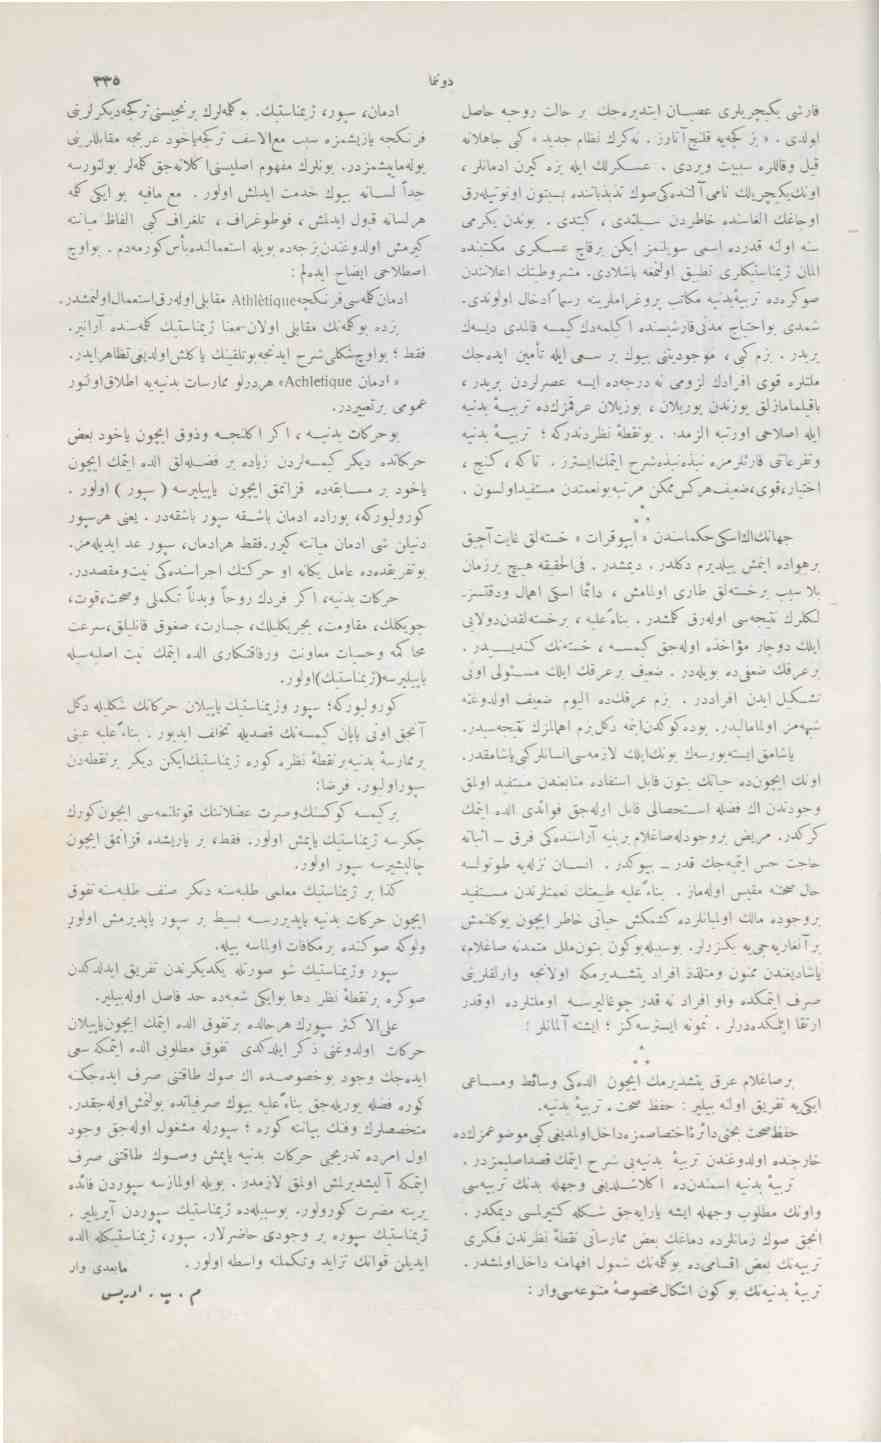 دوننما
٣٣٥
قارشی یکیچریلری عصیان ایتدیره‌جك بر حالت روحیه حاصل
اولدی . « بز کچه‌یه قلنج آتارز . نه‌کرك نظام جدید » کبی جاهلانه
قیل وقاللره سببیت ویردی . عسکرلك ایله بزه کیرن ادمانلر ،
اونك یکیچریلك نامی آلتنده‌کی صوك تذبذباتنده بسبتون اونوتیله‌رق
اوجاغك الغاسنده خاطردن سیلندی ، کیتدی . بوندن یکرمی
سنه اولنه قدرده اسمی سویلنمز ایکن برقاچ عسکری مکتبنده
آلمان ژیمناستیکلری تطبیق اولنمغه باشلادی. مشروطیتك اعلانندن
صوکره‌ده تربیهٔ بدنیه مکاتب پروغراملرینه رسماً ادخال اولوندی.
شمدی بواحتیاج مدنی قارشیسنده اکیلمه‌دك کیمسه قالمدی دیسه‌ك
یریدر . بزم کبی ، موجودیتنی بیوك بر سعی ایله تأمین ایده‌جك
ملتلره قوی افرادك لزومی نه درجه‌ده ایسه عصرلردن بریدر ،
باقیلمامازلق یوزندن یوریلان ، بوزیلان عرقمزك‌ده تربیهٔ بدنیه
ایله اصلاحی اورتبه الزمدر . بونقطهٔ نظردندرکه ؛ تربیهٔ بدنیه
وتفرعاتی قارئلرمزه نبذه نبذه شرح ایتمك ایسترز . تاکه ، کنج ،
اختیار، قوی، ضعیف هرکس ممکن مرتبه بونعمتدن مستفید اولسون .
* * *
جهانك اك اسکی حکماسندن « ایپوقرات » خسته‌لق غایت آچیق
برهواده ایتمش ییلدیرم دکلدر . دیمشدر . فی‌الحقیقه هیچ برزمان
بلا سبب برخسته‌لق طاری اولمامش ، دائما اسکی اهمال ودقتسز-
لکلرك نتیجه‌سی اوله‌رق کلمشدر . بناءً علیه ، برخسته‌لقدن دولایی
ایلك دوچار مؤاخذه اوله‌جق کیمسه ، خسته‌نك کندیسیدر .
برعرقك ضعفی‌ده بویله‌در . ضعیف برعرقك ایلك مسئولی اونی
تشکیل ایدن افراددر . بزم عرقك‌ده الیوم ضعیف اولدوغنه
شبهه‌مز اولمامالیدر. بوده کوکدن اینمه دکل بزم اهمالمزك نتیجه‌سیدر.
یاشامق ایسته‌یورسه‌ك بونك ایلك لازمه‌سی انسانلر کبی یاشامقدر.
اونك ایچون‌ده حیاتك بتون قابل استفاده منابعندن مستفید اولمق
وجوددن اك فضله استحصالی قابل اوله‌جق فوائدی الده ایتمك
کرکدر. مریض بروجودله صاغلام برینیه آراسنده‌کی فرق ــ اثباته
حاجت حس ایتمیه‌جك قدر ــ بیوکدر . انسان نزله‌یه طوتولسه
حال صحتنه مقیس اوله‌ماز . بناءً علیه طبیعتك نعمتلرندن مستفید
بروجوده مالك اولمیانلرده کشمکش حیاتی خاطر ایچون یوکلنمش
بر آنغاریه‌جی‌یه بکزرلر. بوسبیله بوکون بتون ملل متمدنه صاغلام،
یاشادیغندن ممنون ومتلذذ افراد یتشدیرمکه اولانجه وارلقلرینی
صرف ایتمکده واو افراد نه قدر چوغالیرسه اوملتلرده اوقدر
ارتقا ایتمکده‌درلر . نمونه ایسترسه‌کز ؛ ایشته آلمانلر !
* * *
برصاغلام عرق یتشدیرمك ایچون الده‌کی وسائط ومساعی
ایکی‌یه تفریق اولنه بیلیر : حفظ صحت ، تربیهٔ بدنیه.
حفظ صحت بحثی دائرهٔ اختصاصمزه داخل اولمدیغی کبی موضوعمزك‌ده
خارجنده اولدوغندن تربیهٔ بدنیه‌یی شرح ایتمك قصد اصلیمزدر .
تربیهٔ بدنیه اسمندن‌ده اکلاشلدیغی وجهله بدنك تربیه‌سی
واونك مطلوب وجهله ایشه یارایه‌جق شکله کتیرلمسی دیمکدر .
انجق صوك زمانلرده دماغك بعض ممارساتی نقطهٔ نظرندن فکری
تربیه‌نك بعض اقسامی‌ده بوکله‌نك شمول افهامنه داخل اولمشدر .
تربیهٔ بدنیه‌نك بوکون اشکال مخصوصهٔ متنوعه‌سی وار :
ادمان، سپور، ژیمناستیك. بوکله‌لرك برنجیسنی ترکجه دیکرلرینی
فرنکجه یازیشمزه سبب مع‌الاسف ترکجه یاخود عربجه مقابللرینی
بوله‌مایشمزدر. بونلرك مفهوم اصلیسنی اکلاته‌جق کله‌لر بولنورسه
جداً لسانه بیوك خدمت ایدلمش اولور . مع مافیه بو ایکی کله
هرلسانه قبول ایدلمش ، فوطوغراف ، تلغراف کبی الفاظ میاننه
کیرمش اولدوغندن بزجه‌ده بویله استعمالنده بأس کورمه‌دم . بواوچ
اصطلاحی ایضاح ایده‌لم :
ادمان کله‌سی فرنکجه Athlètique مقابلی اوله‌رق استعمال اولنمشدر.
بزده بوکله‌نك مقابلی اولان معنا ژیمناستیك کله‌سنده آرانیر.
فقط ؛ بواوچ شکلی شرح ایدنجه بوتلقینك یاکلش اولدیغی تظاهر ایدر.
« ادمان Achletique» هردرلو ممارسات بدنیه‌یه اطلاق اولنور
عمومی برتعبیردر.
بوحرکات بدنیه ، اکر اکلنجه وذوق ایچون یاخود بعض
حرکاتده دیکر کیمسه‌لردن زیاده بر فضله‌لق الده ایتمك ایچون
یاخود بر مسابقه‌ده قزانمق ایچون یاپیلیرسه ( سپور ) اولور .
کورولیورکه، بوراده ادمان باشقه سپور باشقه‌در . یعنی هرسپور
دنیلن شی ادمان میاننه کیرر. فقط هرادمان، سپور عد ایدیله‌مز.
بوتفریقده‌ده عامل یکانه او حرکتك اجراسنده‌کی نیت ومقصددر.
حرکات بدنیه، اکر فردك روحاً وبدناً تکملی وصحت، قوت،
چویکلك، مقاومت، بجریکلیلك، جسارت، صغوق قانلیلق، سرعت
محاکمه وحسیات معاونت ورفاقتکاری الده ایتمك نیت اصلیه‌سیله
یاپیلیرسه (ژیمناستیك) اولور.
کورولیورکه؛ سپور وژیمناستیك یاپیلان حرکاتك شکلیله دکل
آنجق اونی یاپان کیمسه‌نك قصدیله تخالف ایدیور . بناءً علیه عینی
برممارسهٔ بدنیه برنقطهٔ نظره کوره ژیمناستیك ایکن دیکر برنقطه‌دن
سپور اولیور. فرضا:
برکیمسه کوکسنك وصرت عضلاتنك قوتلنمه‌سی ایچون کورك
چکرسه ژیمناستیك یاپمش اولور. فقط، بر یاریشده قزانمق ایچون
چالیشیرسه سپور اولور.
کذا بر ژیمناستیك معلمی طلبه‌سنه دیکر صنف طلبه‌سنه تفوق
ایچون حرکات بدنیه یاپدیررسه بسیط بر سپور یاپدیرمش اولور
ولوکه صوکنده برمکافات اولماسه بیله.
سپور وژیمناستیك شو صورتله یکدیکرندن تفریق ایدلدکدن
صوکره برنقطهٔ نظر دها بوایکی شعبه‌ده حد فاصل اوله‌بیلیر.
علی‌الاکثر سپورك هرحالده برتفوق الده ایتمك ایچون یاپیلان
حرکات اولدوغنی ذکر ایلدکدی تفوق مطلوبی الده ایتمکه سعی
ایده‌جك وجود بوخصوصده اك صوك طاقتنی صرف ایده‌جکنه
کوره فضله یوریله‌جق بناءً علیه بیوك صرفیاتده بولنمش اوله‌جقدر.
متخصصلرك وفنك بیاننه کوره ؛ سپورله مشغول اوله‌جق وجود
اول امرده تدریجی حرکات بدنیه یاپمش وصوك طاقتنی صرف
ایتمکه آلیشدیرلمش اولمق لازمدر. بویله اولمازسه سپوردن فائده
یرینه مضرت کورولور. بوسبیله‌ده ژیمناستیك سپوردن آیریلیر .
ژیمناستیك سپوره بر وجودی حاضرلار. سپور، ژیمناستیکله الده
ایدیلن قوانك تزاید وتکملنه واسطه اولور .
مابعدی وار
م . پ . ادریس